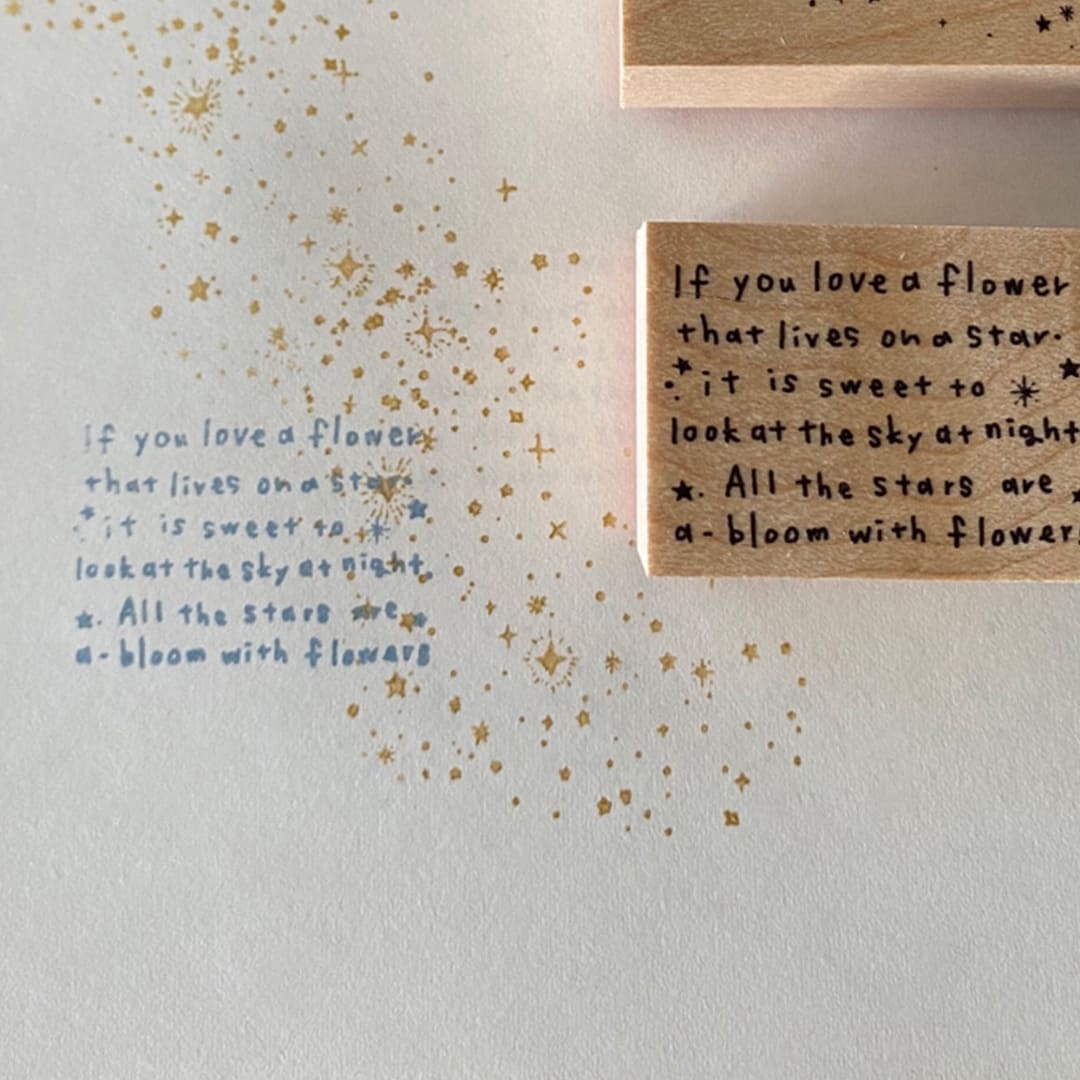 If you love a flower
that lives on a star.
it is sweet to
look at the sky at night.
All the stars are
a-bloom with flowers
If you love a flower
that lives on a star.
it is sweet to
look at the sky at night
. All the stars are
a-bloom with flowers